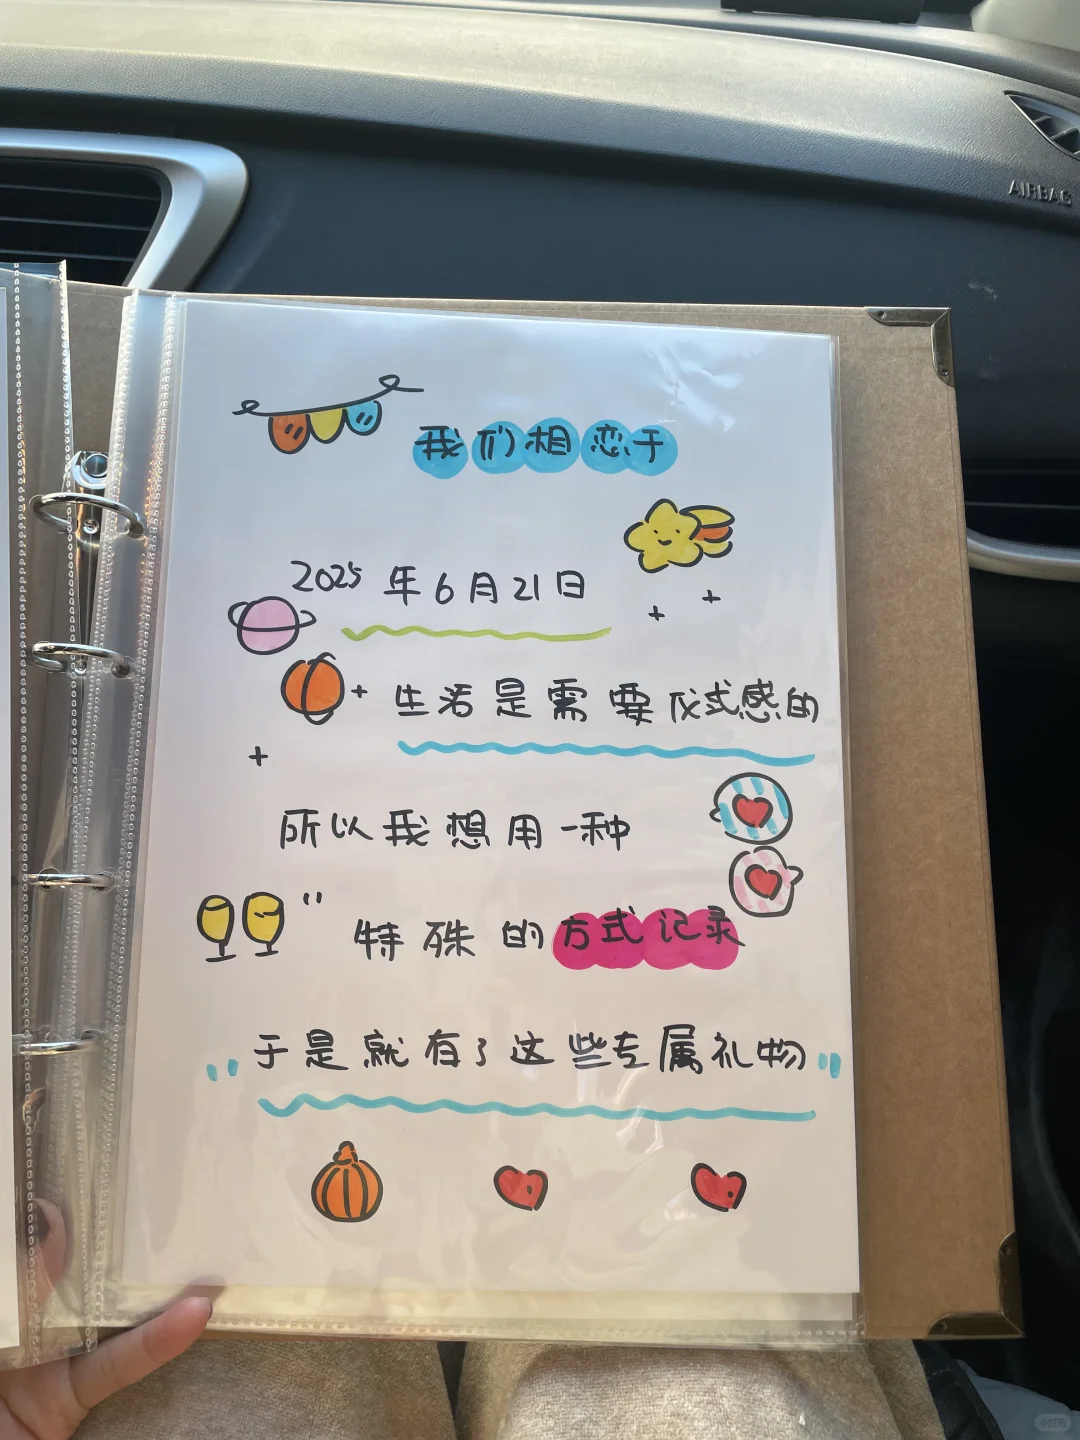 AIRBAG
我们相恋于
2025年6月21日
生活是需要仪式感的
所以我想用一种
特殊的方式记录
于是就有了这些专属礼物
小红书